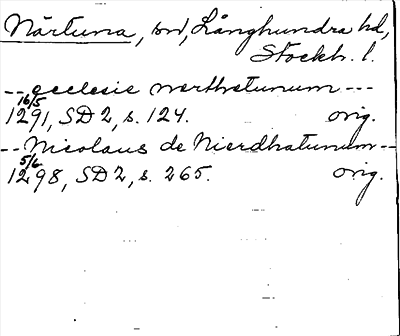 Närtuna, sn, Långhundra hd,
Stockh. l.
--ecclesie nerthatunum---
16/5
1291, SD 2, s. 124. orig.
--Nicolaus de Nierdhatunum--
5/6
1298, SD 2, s. 265. orig.